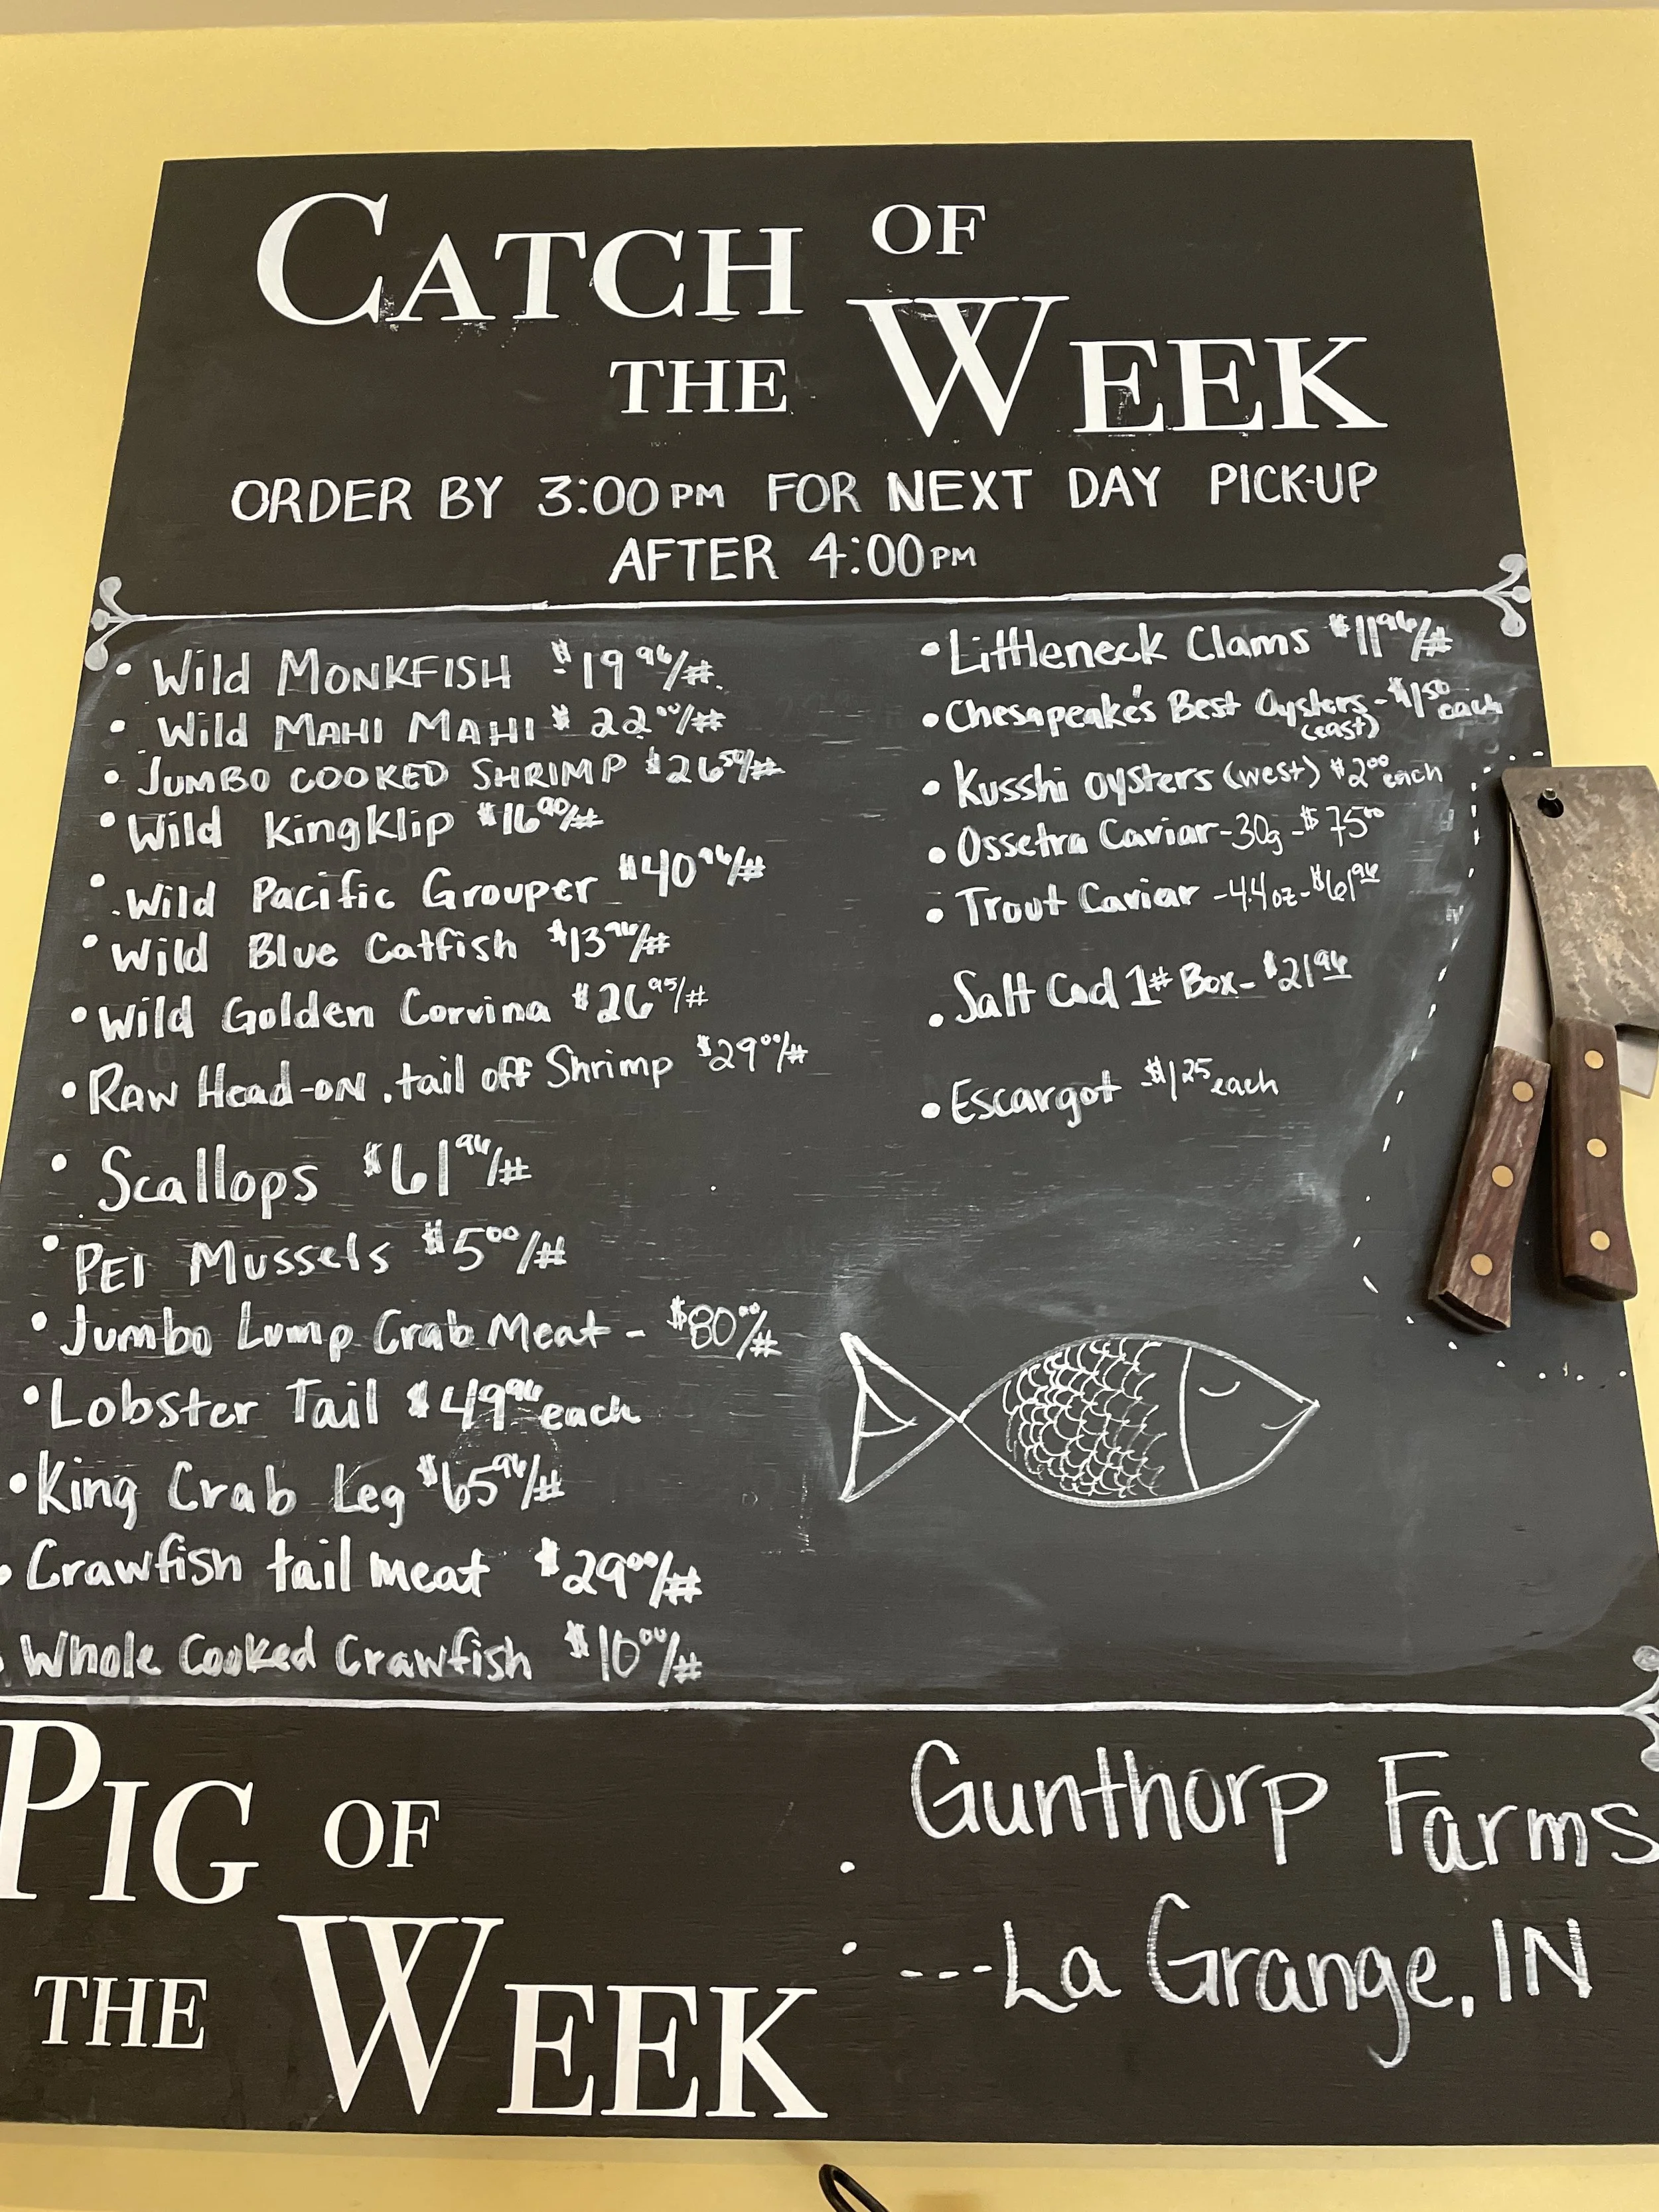 CATCH OF
THE WEEK
ORDER BY 3:00PM FOR NEXT DAY PICK-UP
AFTER 4:00PM
• Wild MONKFISH $19.96/#
• Wild MAHI MAHI $22.00/#
• JUMBO COOKED SHRIMP $26.50/#
• Wild Kingklip $16.90/#
• Wild Pacific Grouper $40.96/#
• Wild Blue Catfish $13.96/#
• Wild Golden Corvina $26.95/#
• RAW Head-ON, tail off Shrimp $29.00/#
• Scallops $61.96/#
• PEI Mussels $5.00/#
• Jumbo Lump Crab Meat - $80.00/#
• Lobster Tail $49.96 each
• King Crab Leg $65.96/#
• Crawfish tail meat $29.00/#
• Whole Cooked Crawfish $10.00/#
• Littleneck Clams $11.96/#
• Chesapeake's Best Oysters - $1.50 each
(east)
• Kusshi oysters (west) $2.00 each
• Ossetra Caviar - 30g - $75.00
• Trout Caviar - 4.4oz - $61.96
• Salt Cod 1# Box - $21.96
• Escargot - $1.25 each
PIG OF
THE WEEK
• Gunthorp Farms
• ---La Grange, IN